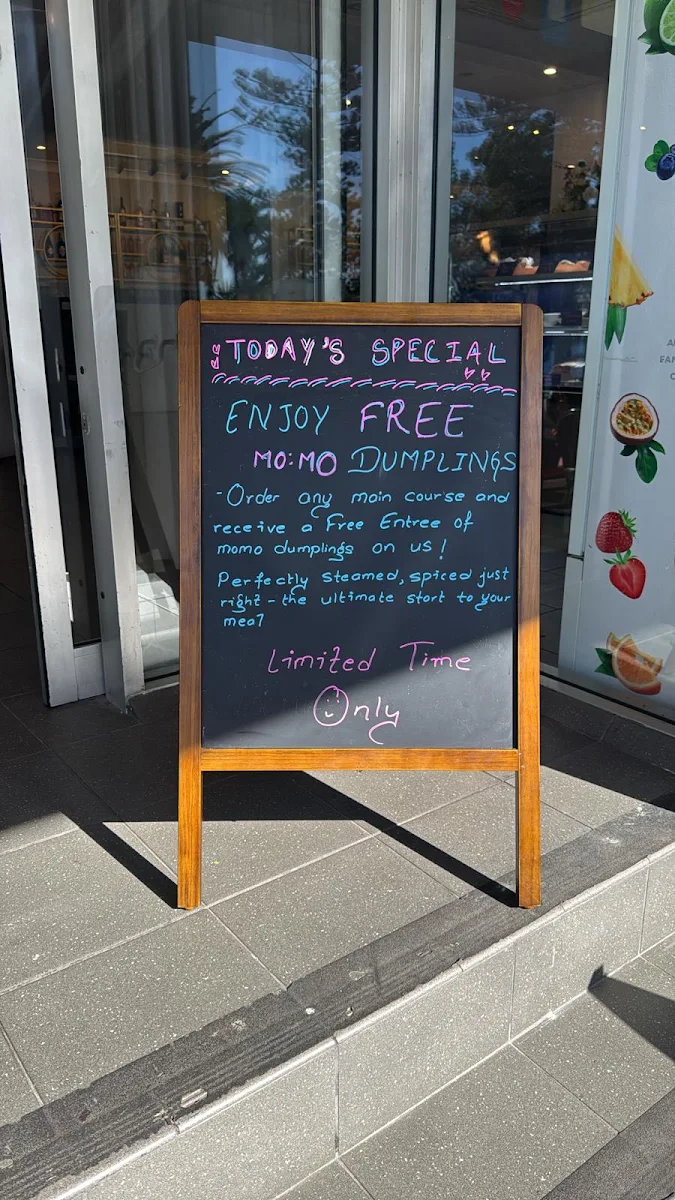 TODAY'S SPECIAL
ENJOY FREE
MO:MO DUMPLINGS
- Order any main course and
receive a Free Entree of
momo dumplings on us!
Perfectly steamed, spiced just
right - the ultimate start to your
meal
Limited Time
Only